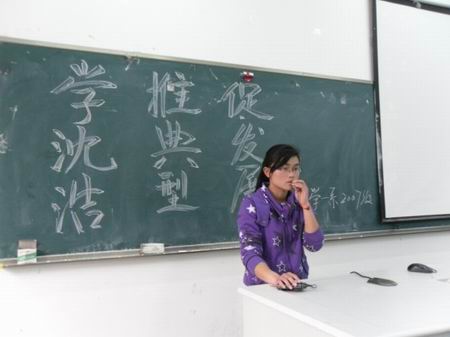 学沈浩
推典型
促发展
学一系2007级